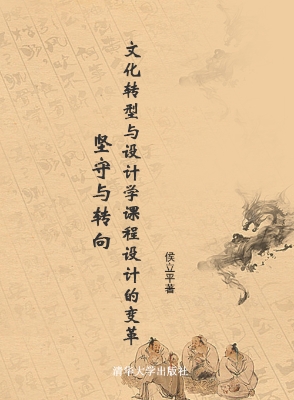 文化转型与设计学课程设计的变革
坚守与转向
侯立平著
清华大学出版社